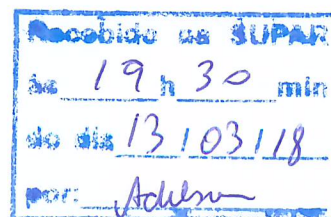 Recebido na SUPAR
às 19 h 30 min
do dia 13 / 03 / 18
por: Adelson